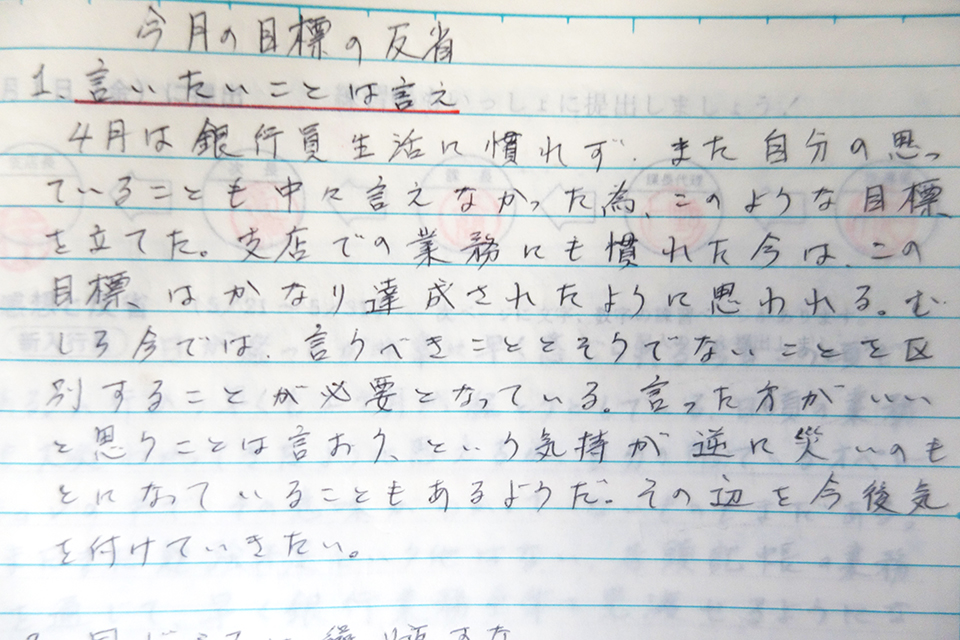 今月の目標の反省
1. 言いたいことは言え
4月は銀行員生活に慣れず、また自分の思っ
ていることも中々言えなかった為、このような目標
を立てた。支店での業務にも慣れた今は、この
目標はかなり達成されたように思われる。む
しろ今では、言うべきこととそうでないことを区
別することが必要となっている。言った方がいい
と思うことは言おう、という気持が逆に災いのも
とになっていることもあるようだ。その辺を今後気
を付けていきたい。